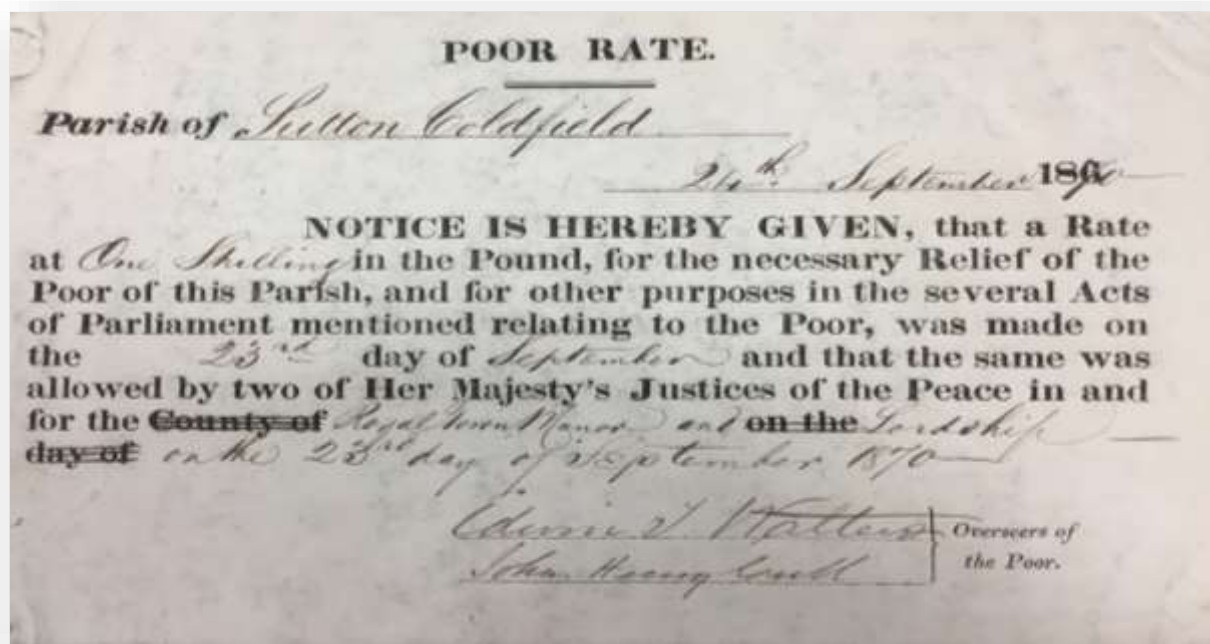 POOR RATE.
Parish of Sutton Coldfield
24th September 1870
NOTICE IS HEREBY GIVEN, that a Rate
at One Shilling in the Pound, for the necessary Relief of the
Poor of this Parish, and for other purposes in the several Acts
of Parliament mentioned relating to the Poor, was made on
the 23rd day of September and that the same was
allowed by two of Her Majesty's Justices of the Peace in and
for the County of Royal Town Manor and on the Lordship
day of on the 23rd day of September 1870
Edwin T Walters Overseers of
John Henry the Poor.